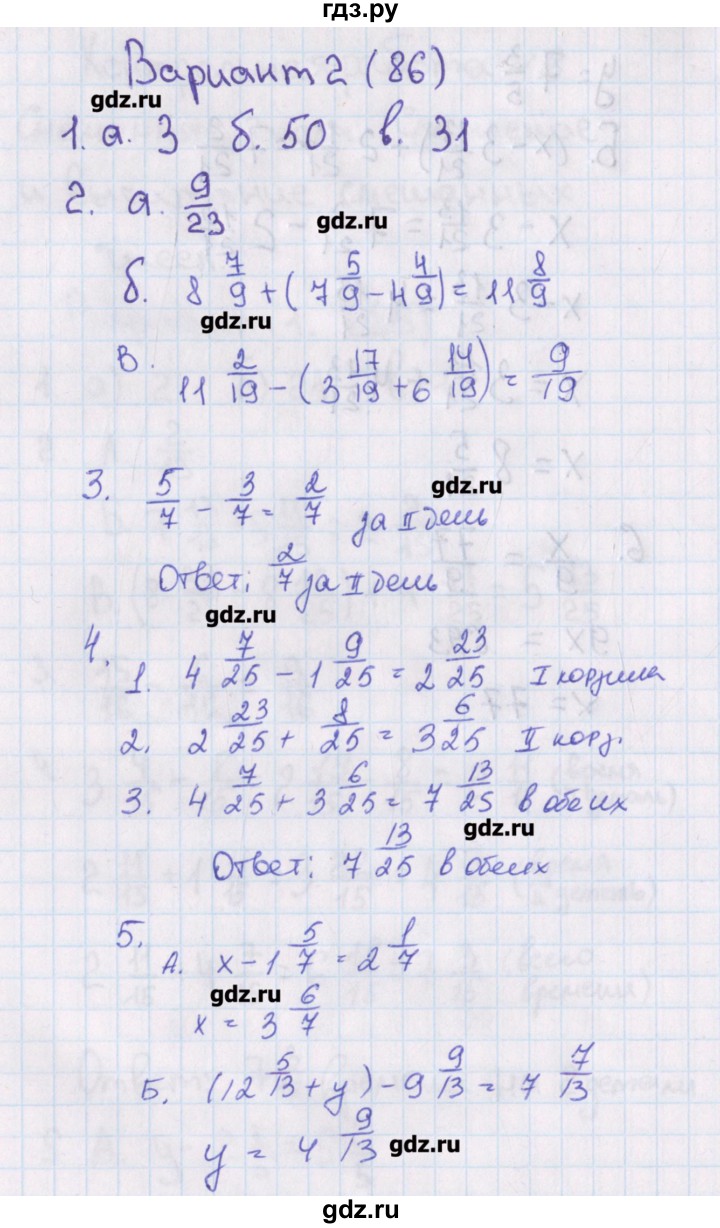 гдз.ру
Вариант 2 (86)
gdz.ru
1. а. 3 б. 50 в. 31
2. а. 9/23
gdz.ru
б. 8 7/9 + (7 5/9 - 4 4/9) = 11 8/9
gdz.ru
в. 11 2/19 - (3 17/19 + 6 14/19) = 9/19
gdz.ru
3. 5/7 - 3/7 = 2/7 за II день
Ответ: 2/7 за II день
gdz.ru
4.
1. 4 7/25 - 1 9/25 = 2 23/25 I корзина
2. 2 23/25 + 8/25 = 3 6/25 II корз.
3. 4 7/25 + 3 6/25 = 7 13/25 в обеих
gdz.ru
Ответ: 7 13/25 в обеих
5.
А. x - 1 5/7 = 2 1/7
gdz.ru
x = 3 6/7
Б. (12 5/13 + y) - 9 9/13 = 7 7/13
y = 4 9/13
gdz.ru
gdz.ru